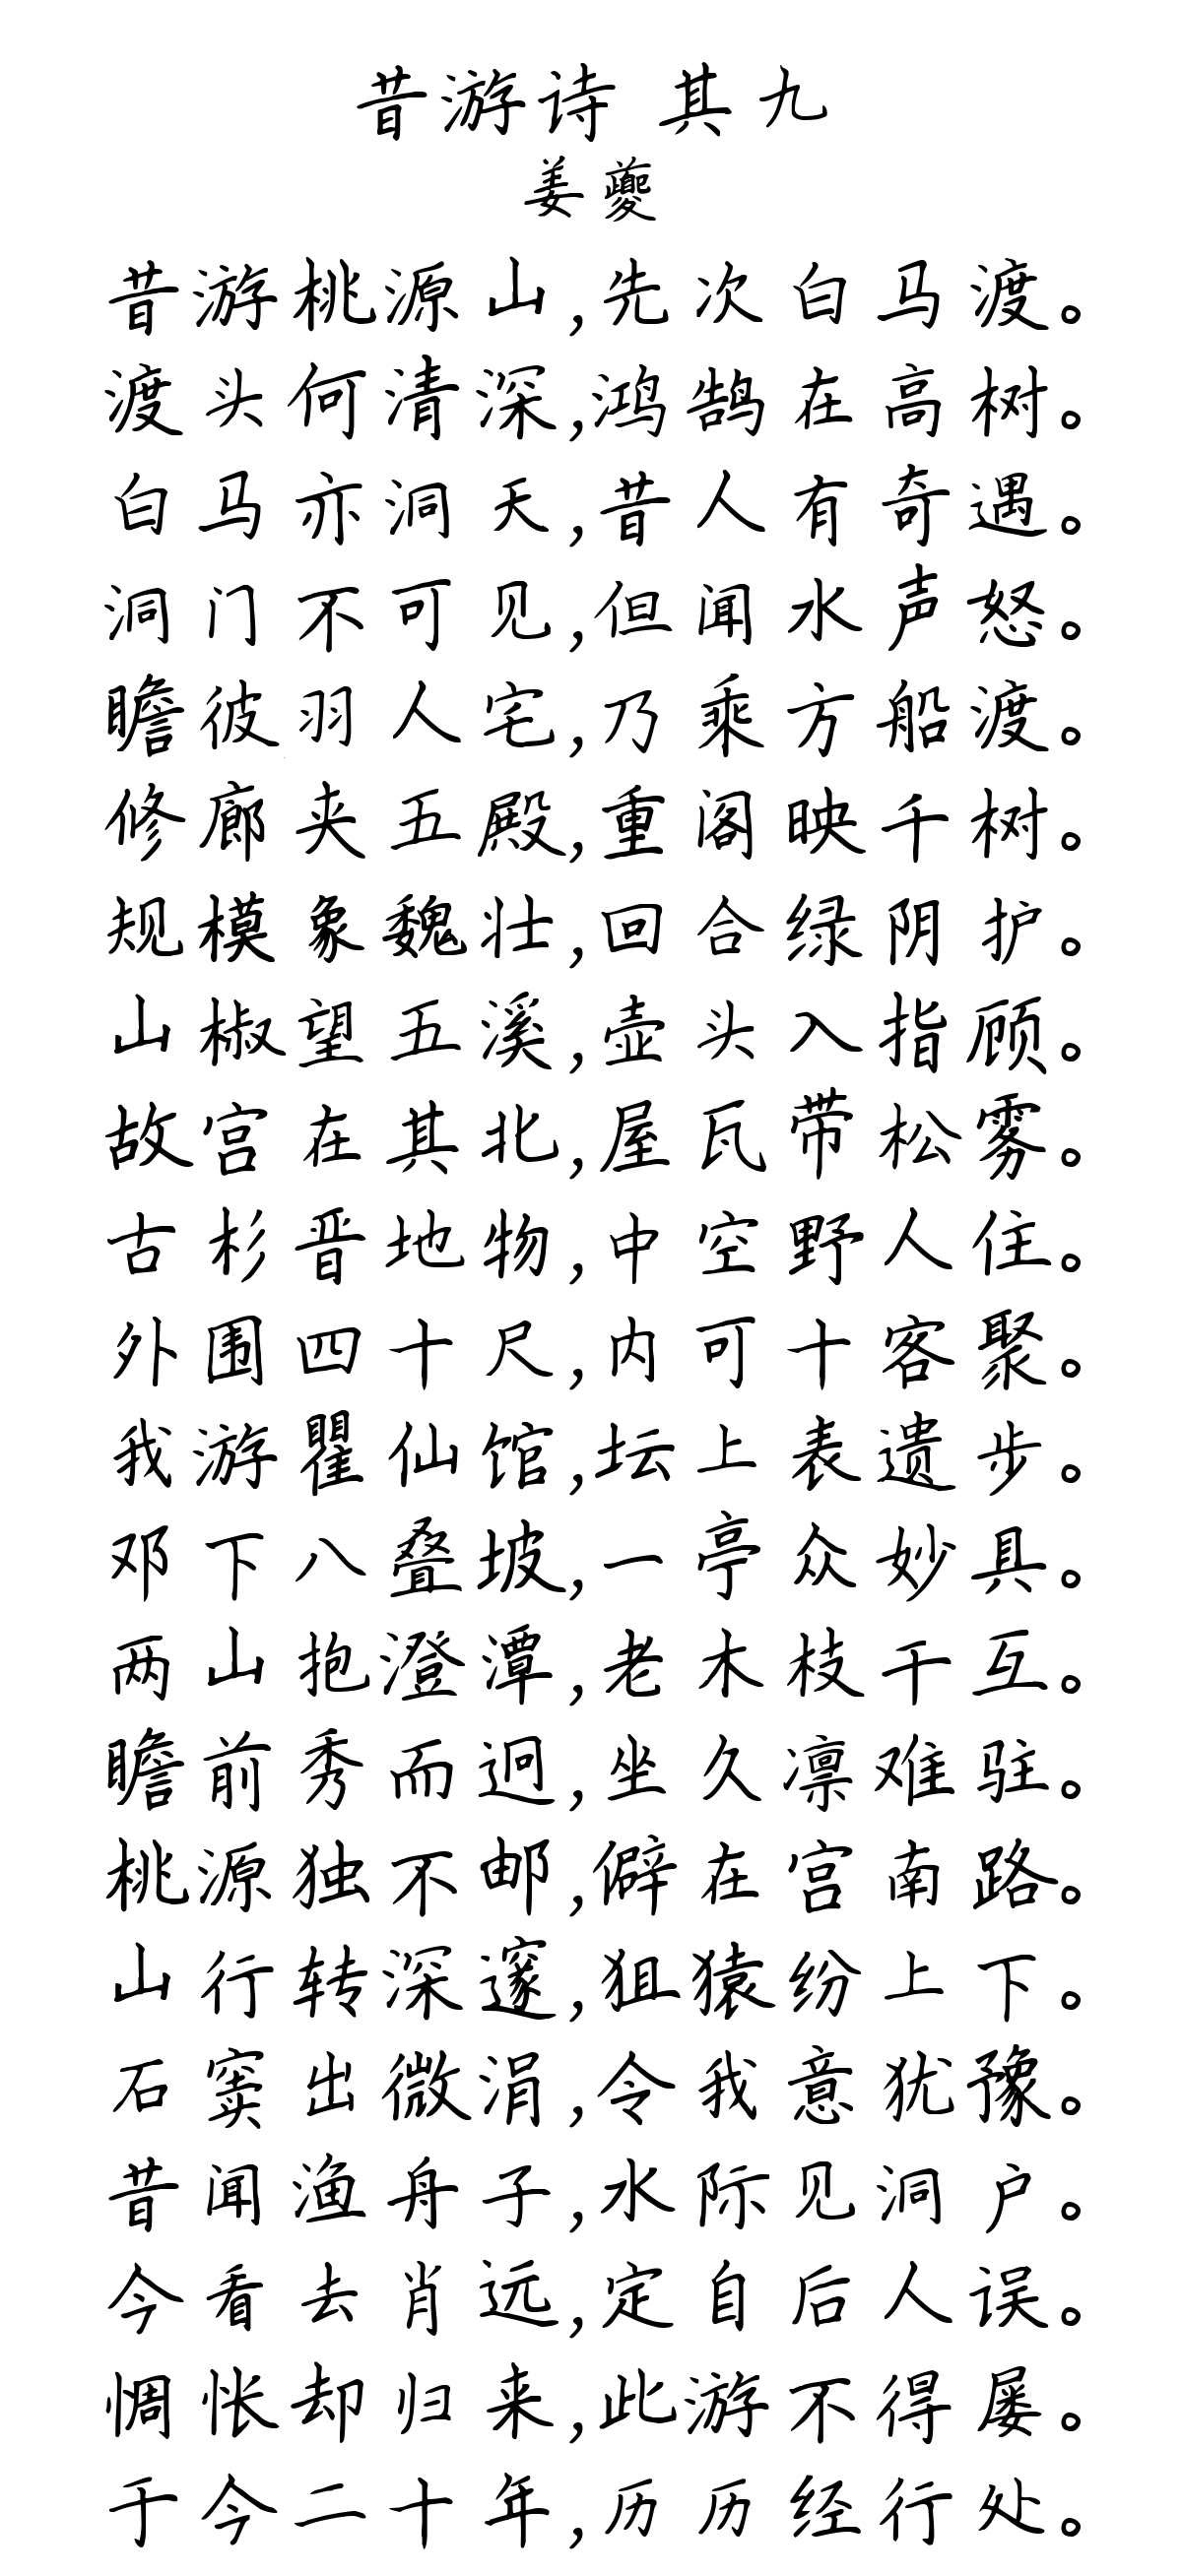 昔游诗 其九
姜夔
昔游桃源山,先次白马渡。
渡头何清深,鸿鹄在高树。
白马亦洞天,昔人有奇遇。
洞门不可见,但闻水声怒。
瞻彼羽人宅,乃乘方船渡。
修廊夹五殿,重阁映千树。
规模象魏壮,回合绿阴护。
山椒望五溪,壶头入指顾。
故宫在其北,屋瓦带松雾。
古杉晋地物,中空野人住。
外围四十尺,内可十客聚。
我游瞿仙馆,坛上表遗步。
邓下八叠坡,一亭众妙具。
两山抱澄潭,老木枝干互。
瞻前秀而迥,坐久凛难驻。
桃源独不邮,僻在宫南路。
山行转深邃,狙猿纷上下。
石窦出微涓,令我意犹豫。
昔闻渔舟子,水际见洞户。
今看去肖远,定自后人误。
惆怅却归来,此游不得屡。
于今二十年,历历经行处。